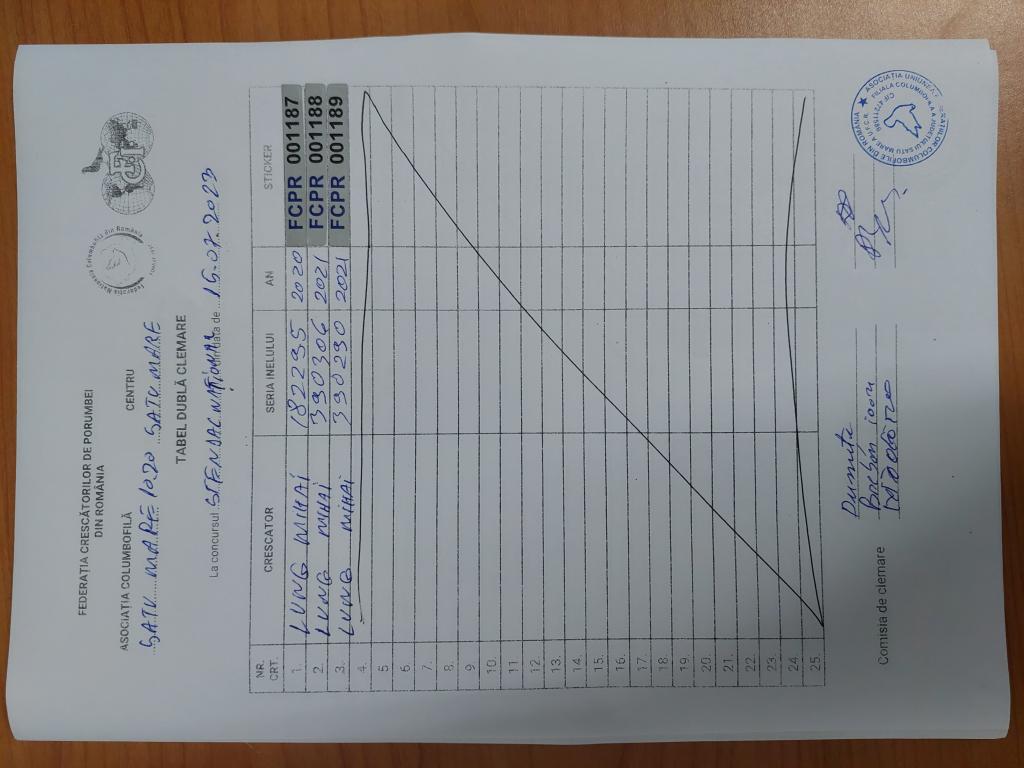 FEDERAȚIA CRESCĂTORILOR DE PORUMBEI
DIN ROMÂNIA
Federația Națională Columbofilă din România
FCPR
ASOCIAȚIA COLUMBOFILĂ CENTRU
SATU MARE 1020 SATU MARE
TABEL DUBLĂ CLEMARE
La concursul NAȚIONAL din data de 15.07.2023
NR. CRT. CRESCATOR SERIA INELULUI AN STICKER
1. LUNG MIHAI 182235 2020 FCPR 001187
2. LUNG MIHAI 390306 2021 FCPR 001188
3. LUNG MIHAI 390290 2021 FCPR 001189
4.
5
6.
7.
8.
9.
10.
11
12.
13.
14.
15.
16.
17.
18.
19.
20.
21.
22.
23.
24.
25.
Comisia de clemare
ioan
ASOCIAȚIA UNIUNEA COLUMBOFILE DIN ROMÂNIA
FILIALA COLUMBOFILĂ A JUDEȚULUI SATU MARE A U.F.C.R.